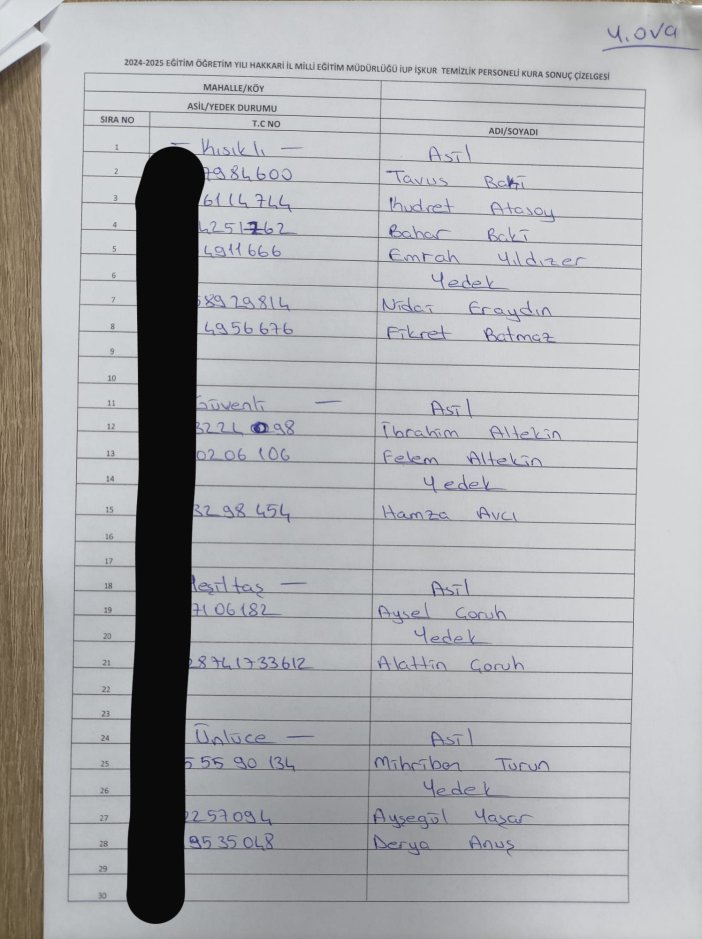 Y.OVA
2024-2025 EĞİTİM ÖĞRETİM YILI HAKKARİ İL MİLLİ EĞİTİM MÜDÜRLÜĞÜ İUP İŞKUR TEMİZLİK PERSONELİ KURA SONUÇ ÇİZELGESİ
MAHALLE/KÖY
ASİL/YEDEK DURUMU
SIRA NO T.C NO ADI/SOYADI
1 – Kısıklı – Asil
2 7984600 Tavus Baki
3 6114744 Kudret Atasoy
4 4251762 Bahar Baki
5 4911666 Emrah Yıldızer
6 Yedek
7 58929814 Nidai Eraydın
8 4956676 Fikret Batmaz
9
10
11 Güvenli – Asil
12 3224098 İbrahim Altekin
13 0206106 Felem Altekin
14 Yedek
15 3298454 Hamza Avcı
16
17
18 Yeşiltaş – Asil
19 7106182 Aysel Çoruh
20 Yedek
21 28741733612 Alattin Çoruh
22
23
24 Ünlüce – Asil
25 5590134 Mihriban Turun
26 Yedek
27 2257094 Ayşegül Yaşar
28 9535048 Derya Anuş
29
30